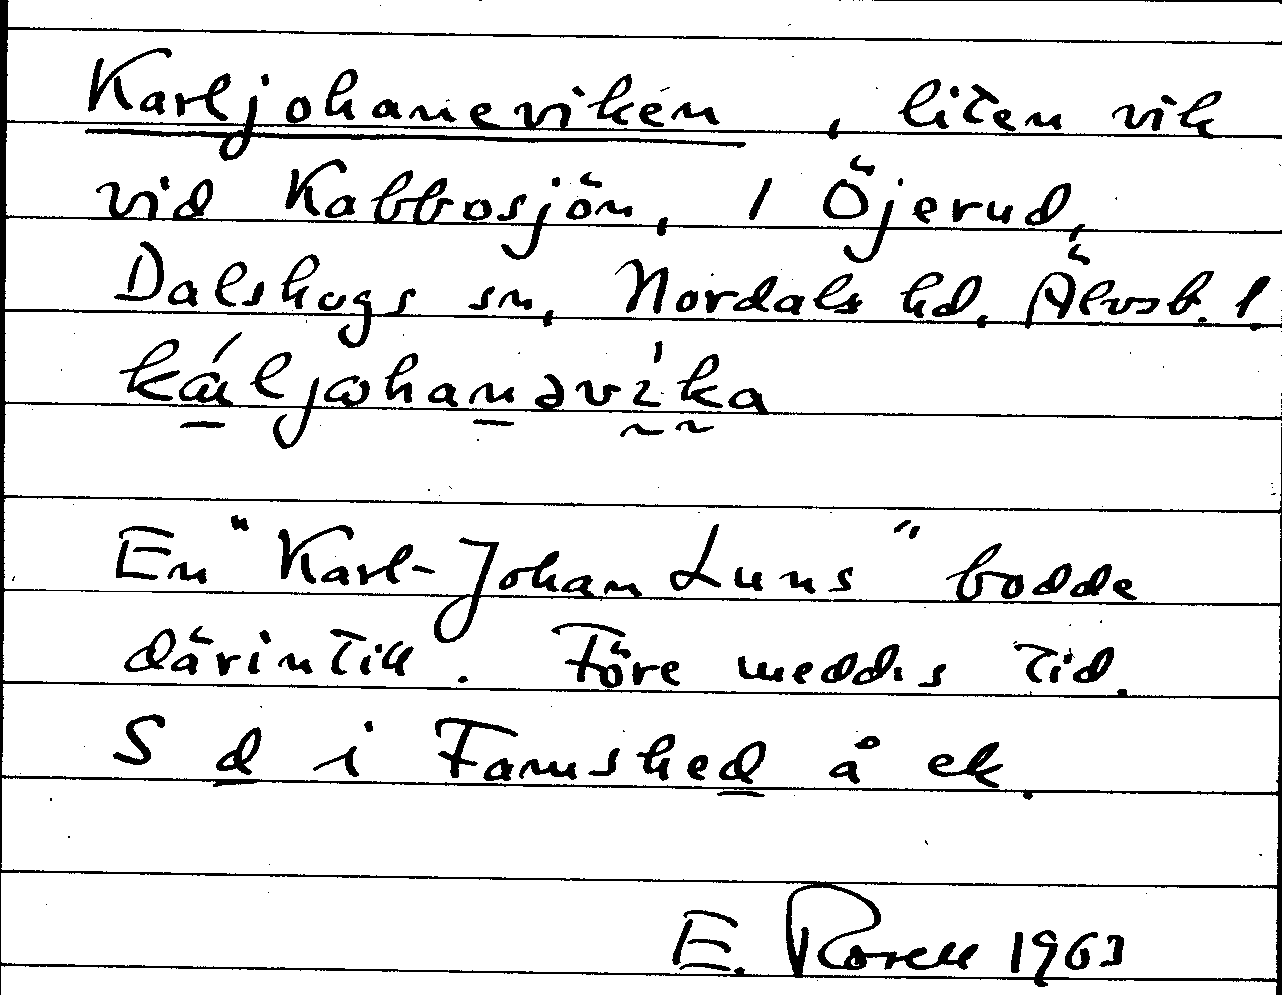 Karljohaneviken, liten vik
vid Kabbosjön, 1 Öjerud,
Dalskogs sn, Nordals hd. Älvsb. l.
káljωhanəvíka
En "Karl-Johan Luns" bodde
därintill. Före medd:s tid.
S d i Famshed å ek.
E. Rosell 1963